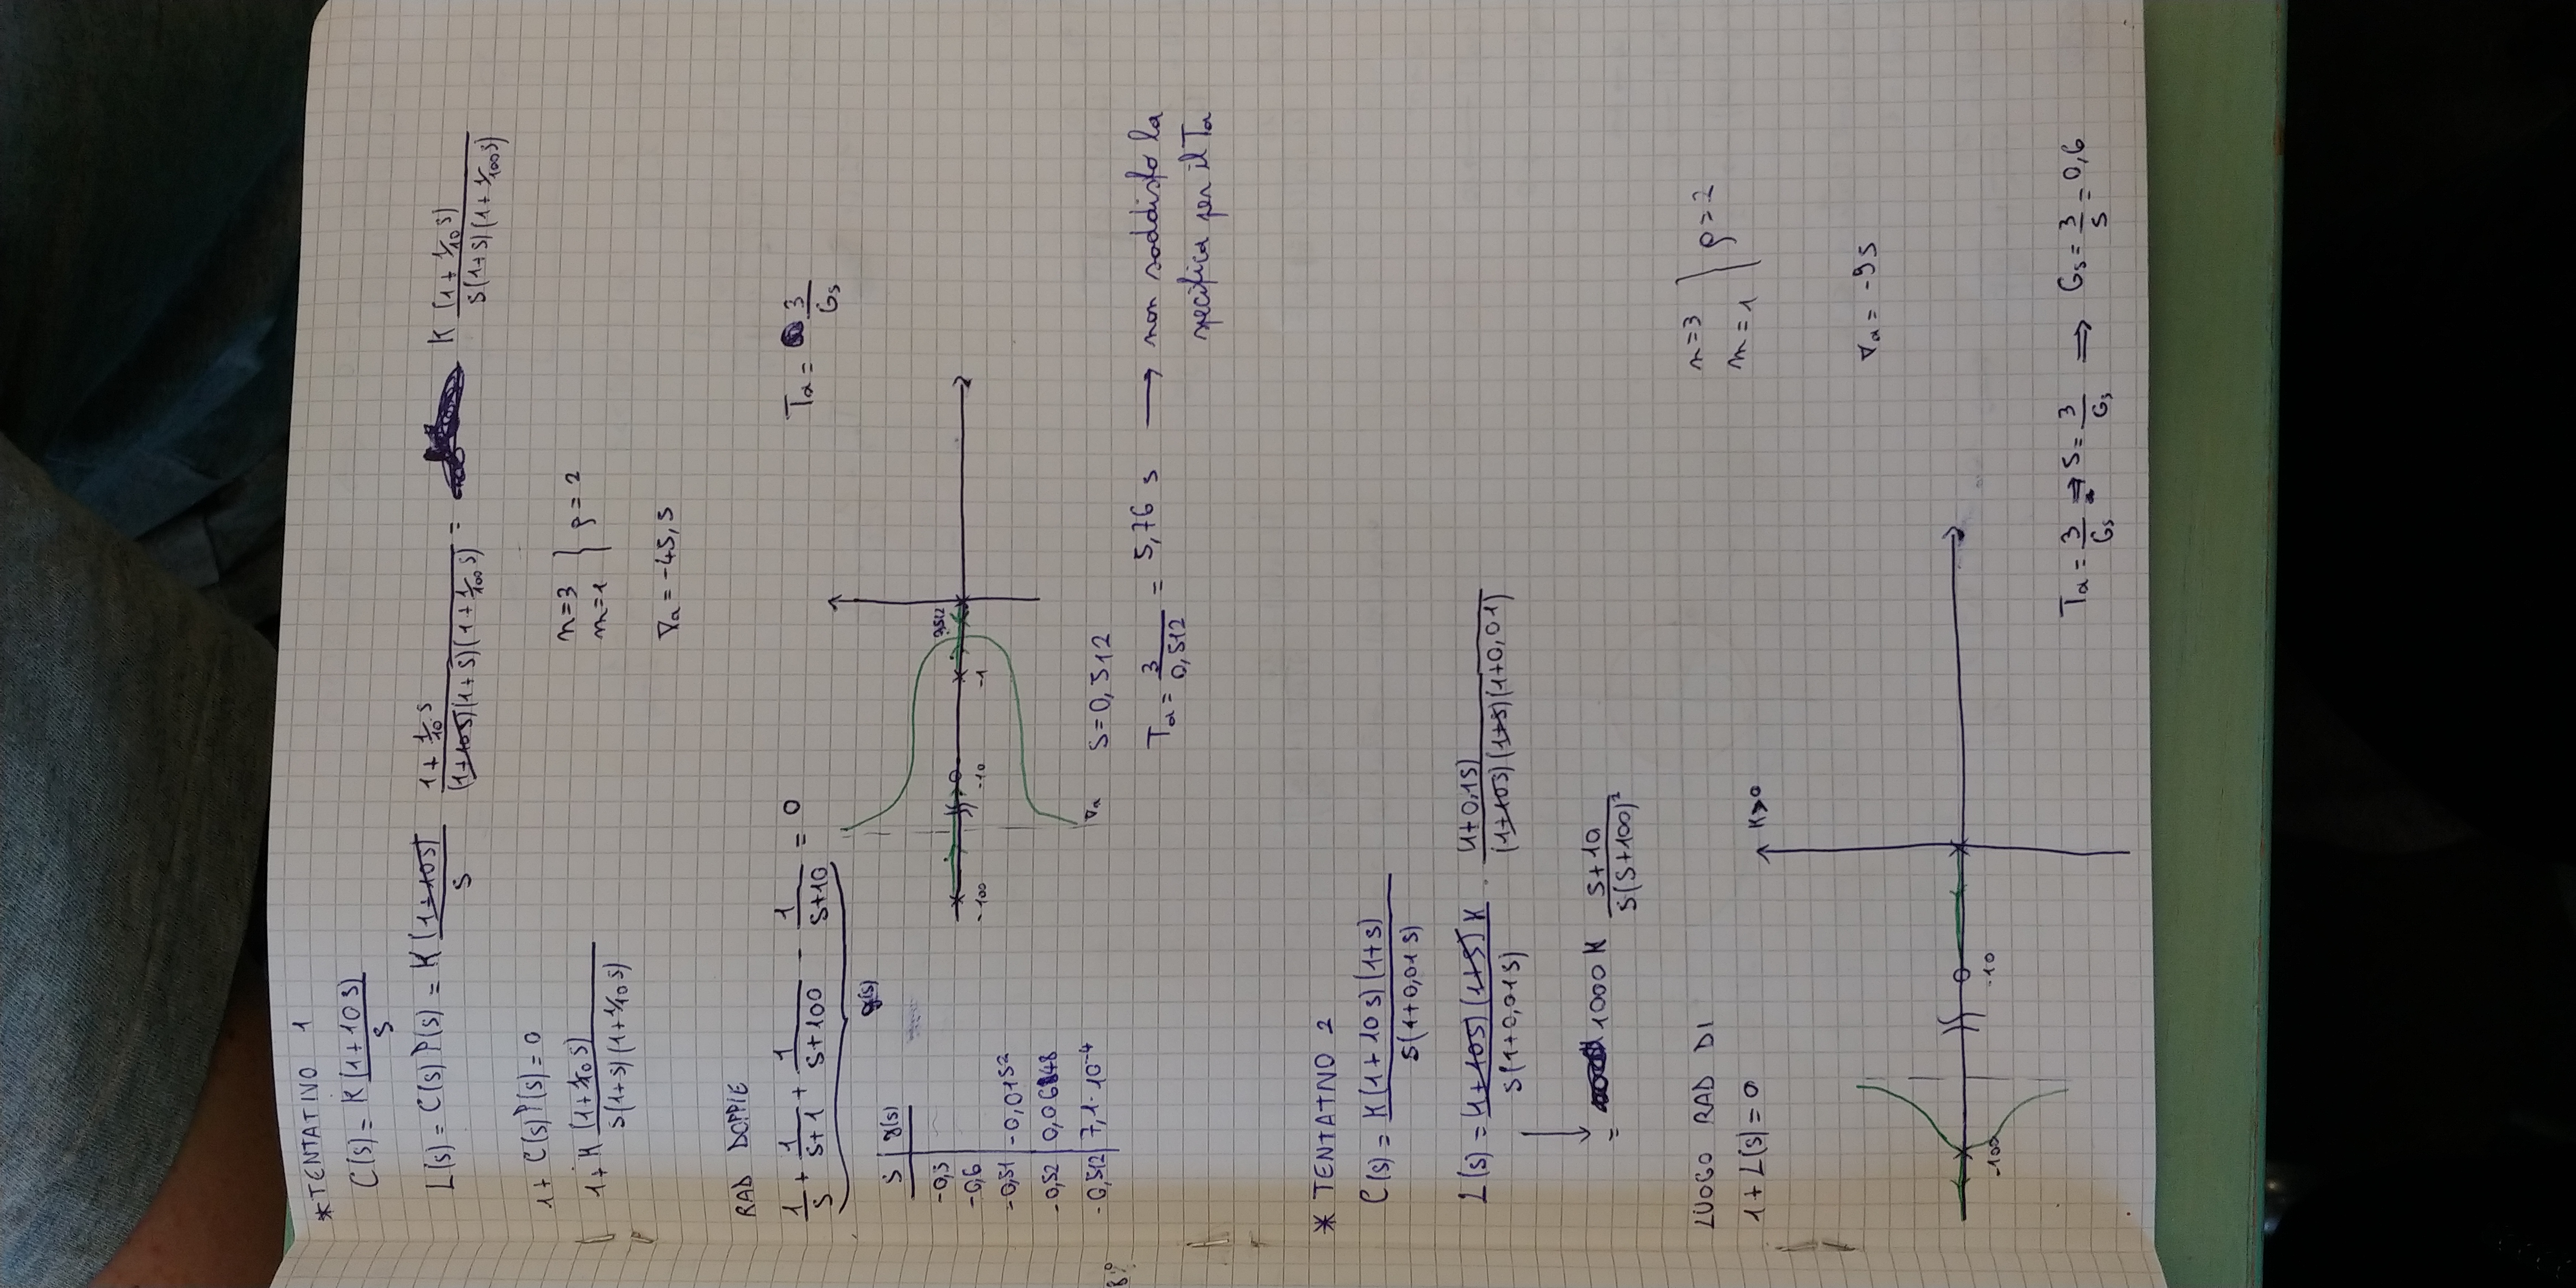 *TENTATIVO 1
C(s) = K(1+10s)/s
L(s) = C(s) P(s) = K(1+10s)/s (1+1/10 s)/((1+10s)(1+s)(1+1/100 s)) = K (1+1/10 s)/(s(1+s)(1+1/100 s))
1+ C(s)P(s) = 0
1+ K (1+1/10 s)/(s(1+s)(1+1/10 s))
n=3
m=1
ρ=2
σa = -45,5
RAD DOPPIE
1/s + 1/(s+1) + 1/(s+100) - 1/(s+10) = 0
g(s)
Ta = 3/Gs
s | g(s)
-0,5
-0,6
-0,51 | -0,0152
-0,52 | 0,06848
-0,512 | 7,1·10⁻⁴
0,512
-100 -10 -1
σa
s=0,512
Ta = 3/0,512 = 5,76 s → non soddisfo la
specifica per il Ta
* TENTATIVO 2
C(s) = K(1+10s)(1+s)/(s(1+0,01s))
L(s) = (1+10s)(1+s)K/(s(1+0,01s)) · (1+0,1s)/((1+10s)(1+s)(1+0,01))
↓
= 1000 K (s+10)/(s(s+100)²)
LUOGO RAD DI
1+L(s)=0
n=3
m=1
ρ=2
K>0
σa = -95
-100 -10
Ta = 3/Gs ⇒ 5 = 3/Gs ⇒ Gs = 3/5 = 0,6